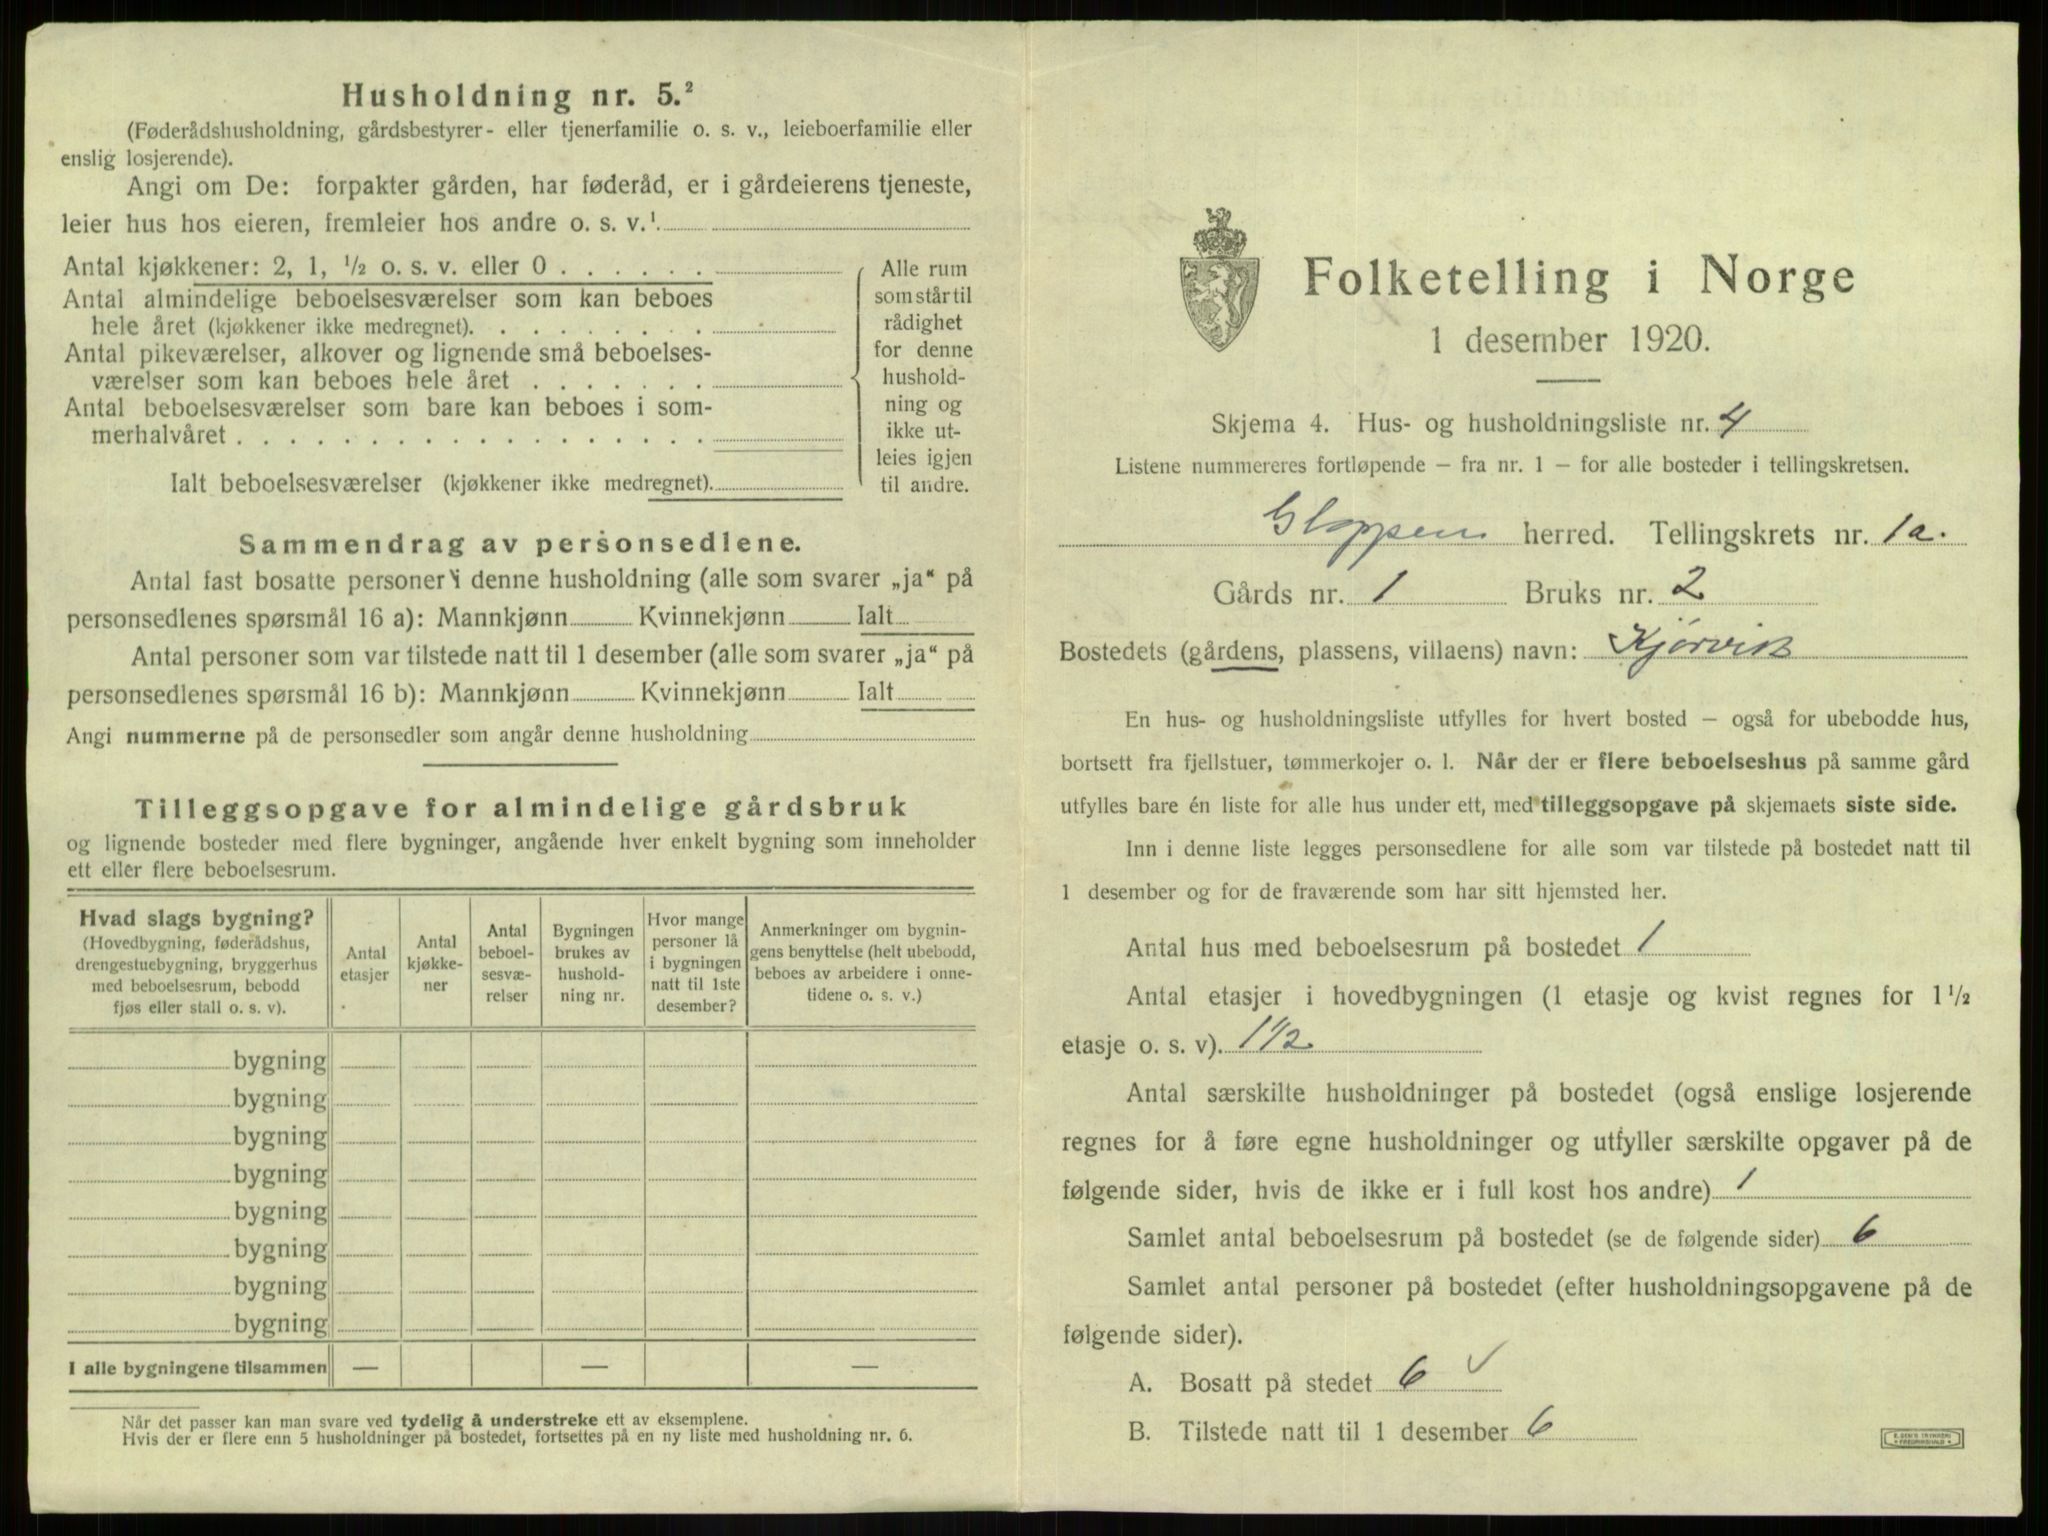 Husholdning nr. 5.²
(Føderådshusholdning, gårdsbestyrer- eller tjenerfamilie o. s. v., leieboerfamilie eller
enslig losjerende).
Angi om De: forpakter gården, har føderåd, er i gårdeierens tjeneste,
leier hus hos eieren, fremleier hos andre o. s. v.¹
Antal kjøkkener: 2, 1, ½ o. s. v. eller 0 . . . . . .
Antal almindelige beboelsesværelser som kan beboes
hele året (kjøkkener ikke medregnet). . . . . . . . .
Antal pikeværelser, alkover og lignende små beboelses-
værelser som kan beboes hele året . . . . . . .
Antal beboelsesværelser som bare kan beboes i som-
merhalvåret . . . . . . . . . . . . . . . . . .
Ialt beboelsesværelser (kjøkkener ikke medregnet).
Alle rum
som står til
rådighet
for denne
hushold-
ning og
ikke ut-
leies igjen
til andre.
Sammendrag av personsedlene.
Antal fast bosatte personer i denne husholdning (alle som svarer „ja“ på
personsedlenes spørsmål 16 a): Mannkjønn Kvinnekjønn Ialt
Antal personer som var tilstede natt til 1 desember (alle som svarer „ja“ på
personsedlenes spørsmål 16 b): Mannkjønn Kvinnekjønn Ialt
Angi nummerne på de personsedler som angår denne husholdning
Tilleggsopgave for almindelige gårdsbruk
og lignende bosteder med flere bygninger, angående hver enkelt bygning som inneholder
ett eller flere beboelsesrum.
Hvad slags bygning?
(Hovedbygning, føderådshus,
drengestuebygning, bryggerhus
med beboelsesrum, bebodd
fjøs eller stall o. s. v).
Antal
etasjer
Antal
kjøkke-
ner
Antal
beboel-
sesvæ-
relser
Bygningen
brukes av
hushold-
ning nr.
Hvor mange
personer lå
i bygningen
natt til 1ste
desember?
Anmerkninger om bygnin-
gens benyttelse (helt ubebodd,
beboes av arbeidere i onne-
tidene o. s. v.)
bygning
bygning
bygning
bygning
bygning
bygning
bygning
bygning
I alle bygningene tilsammen — — —
Når det passer kan man svare ved tydelig å understreke ett av eksemplene.
Hvis der er flere enn 5 husholdninger på bostedet, fortsettes på en ny liste med husholdning nr. 6.
Folketelling i Norge
1 desember 1920.
Skjema 4. Hus- og husholdningsliste nr. 4
Listene nummereres fortløpende – fra nr. 1 – for alle bosteder i tellingskretsen.
Gloppen herred. Tellingskrets nr. 1a.
Gårds nr. 1 Bruks nr. 2
Bostedets (gårdens, plassens, villaens) navn: Kjørvik
En hus- og husholdningsliste utfylles for hvert bosted – også for ubebodde hus,
bortsett fra fjellstuer, tømmerkojer o. l. Når der er flere beboelseshus på samme gård
utfylles bare én liste for alle hus under ett, med tilleggsopgave på skjemaets siste side.
Inn i denne liste legges personsedlene for alle som var tilstede på bostedet natt til
1 desember og for de fraværende som har sitt hjemsted her.
Antal hus med beboelsesrum på bostedet 1
Antal etasjer i hovedbygningen (1 etasje og kvist regnes for 1½
etasje o. s. v). 1½
Antal særskilte husholdninger på bostedet (også enslige losjerende
regnes for å føre egne husholdninger og utfyller særskilte opgaver på de
følgende sider, hvis de ikke er i full kost hos andre) 1
Samlet antal beboelsesrum på bostedet (se de følgende sider) 6
Samlet antal personer på bostedet (efter husholdningsopgavene på de
følgende sider).
A. Bosatt på stedet 6 ✓
B. Tilstede natt til 1 desember 6